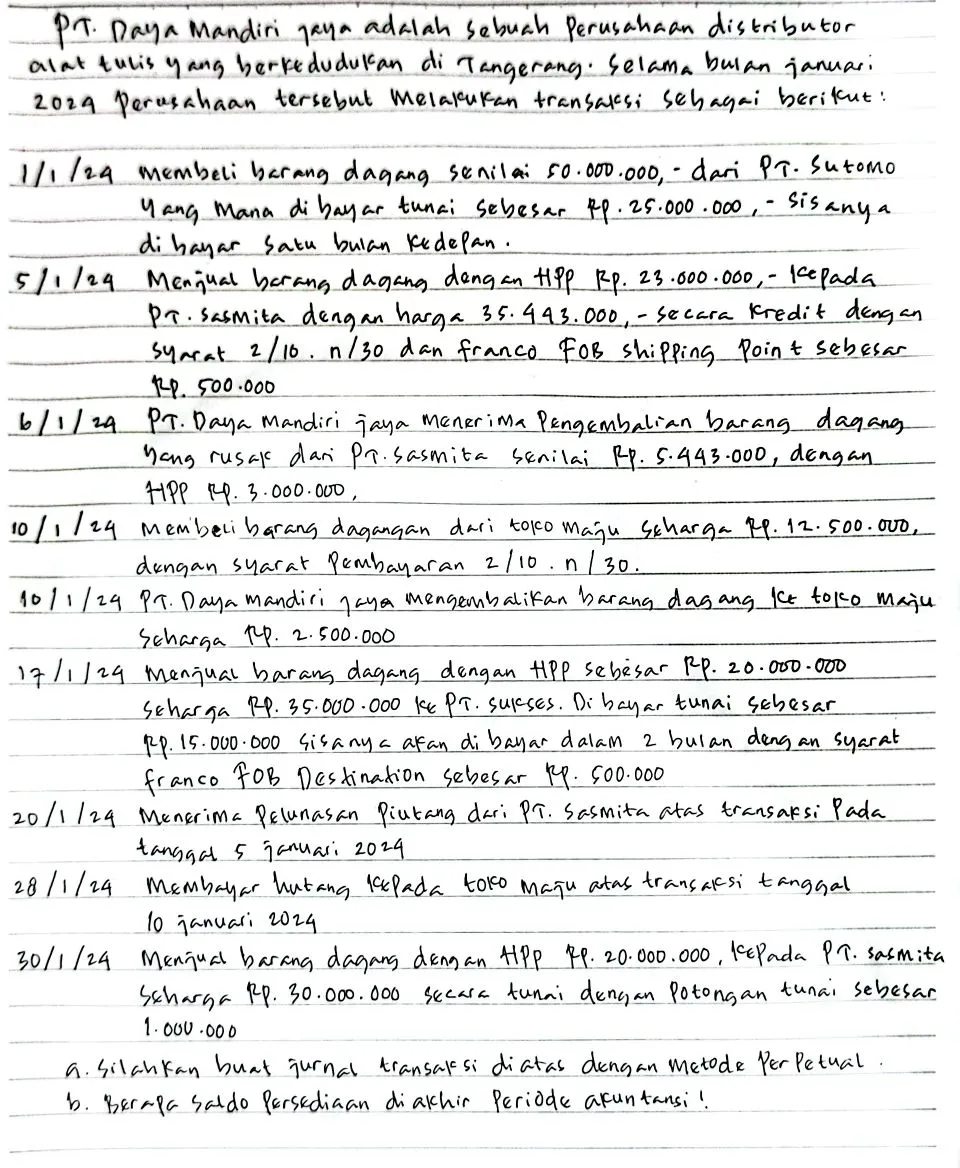 PT. Daya Mandiri jaya adalah sebuah Perusahaan distributor
alat tulis yang berkedudukan di Tangerang. Selama bulan januari
2024 Perusahaan tersebut Melakukan transaksi sebagai berikut:
1/1/24 Membeli barang dagang senilai 50.000.000,- dari PT. Sutomo
yang Mana di bayar tunai sebesar Rp. 25.000.000,- Sisanya
di bayar satu bulan kedepan.
5/1/24 Menjual barang dagang dengan HPP Rp. 23.000.000,- kepada
PT. Sasmita dengan harga 35.443.000,- secara kredit dengan
syarat 2/10. n/30 dan franco FOB shipping Point sebesar
Rp. 500.000
6/1/24 PT. Daya Mandiri jaya Menerima Pengembalian barang dagang
yang rusak dari PT. Sasmita senilai Rp. 5.443.000, dengan
HPP Rp. 3.000.000,
10/1/24 Membeli barang dagangan dari toko maju seharga Rp. 12.500.000,
dengan syarat Pembayaran 2/10. n/30.
10/1/24 PT. Daya mandiri jaya mengembalikan barang dagang ke toko Maju
seharga Rp. 2.500.000
17/1/24 Menjual barang dagang dengan HPP sebesar Rp. 20.000.000
seharga Rp. 35.000.000 ke PT. sukses. Di bayar tunai sebesar
Rp. 15.000.000 sisanya akan di bayar dalam 2 bulan dengan syarat
franco FOB Destination sebesar Rp. 500.000
20/1/24 Menerima Pelunasan Piutang dari PT. Sasmita atas transaksi Pada
tanggal 5 januari 2024
28/1/24 Membayar hutang kepada toko maju atas transaksi tanggal
10 januari 2024
30/1/24 Menjual barang dagang dengan HPP Rp. 20.000.000, kepada PT. sasmita
seharga Rp. 30.000.000 secara tunai dengan Potongan tunai sebesar
1.000.000
a. silahkan buat jurnal transaksi diatas dengan metode PerPetual.
b. Berapa Saldo Persediaan di akhir Periode akuntansi!